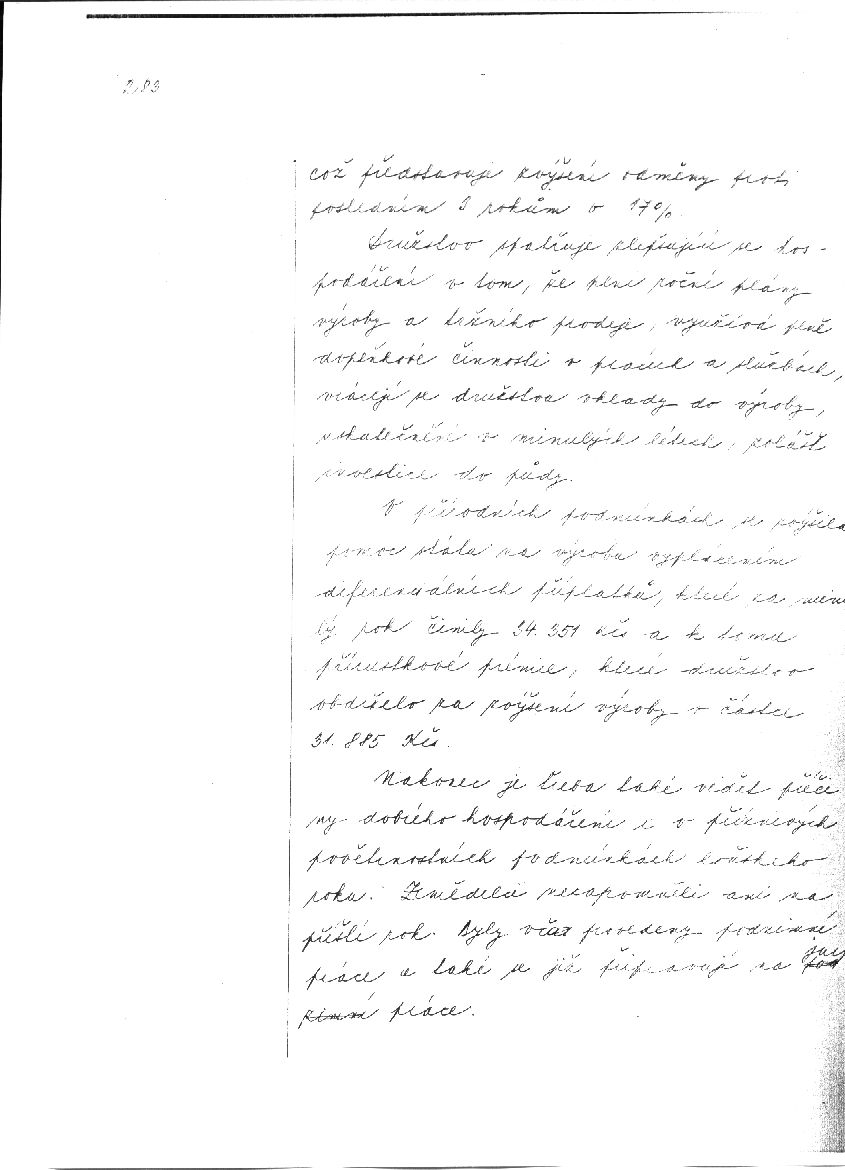 283
což představuje zvýšení odměny proti
posledním 3 rokům o 17%.
Družstvo spatřuje zlepšující se hos-
podaření v tom, že plní roční plány
výroby a tržního prodeje, využívá plně
doplňkové činnosti v pracích a službách,
vrácejí se družstvu vklady do výroby,
uskutečnění v minulých létech, zvlášť
investice do půdy.
V přírodních podmínkách se zvýšila
pomoc státu na výrobu vyplácením
diferenciálních příplatků, které za minu
lý rok činily 34.351 Kčs a k tomu
přírustkové prémie, které družstvo
obdrželo za zvýšení výroby v částce
31.885 Kčs.
Nakonec je třeba také vidět příči
ny dobrého hospodaření i v příznivých
povětrnostních podmínkách loňského
roku. Zemědělci nezapomněli ani na
příští rok. Byly včas provedeny podzimní
práce a také se již připravují na jar
ní práce.